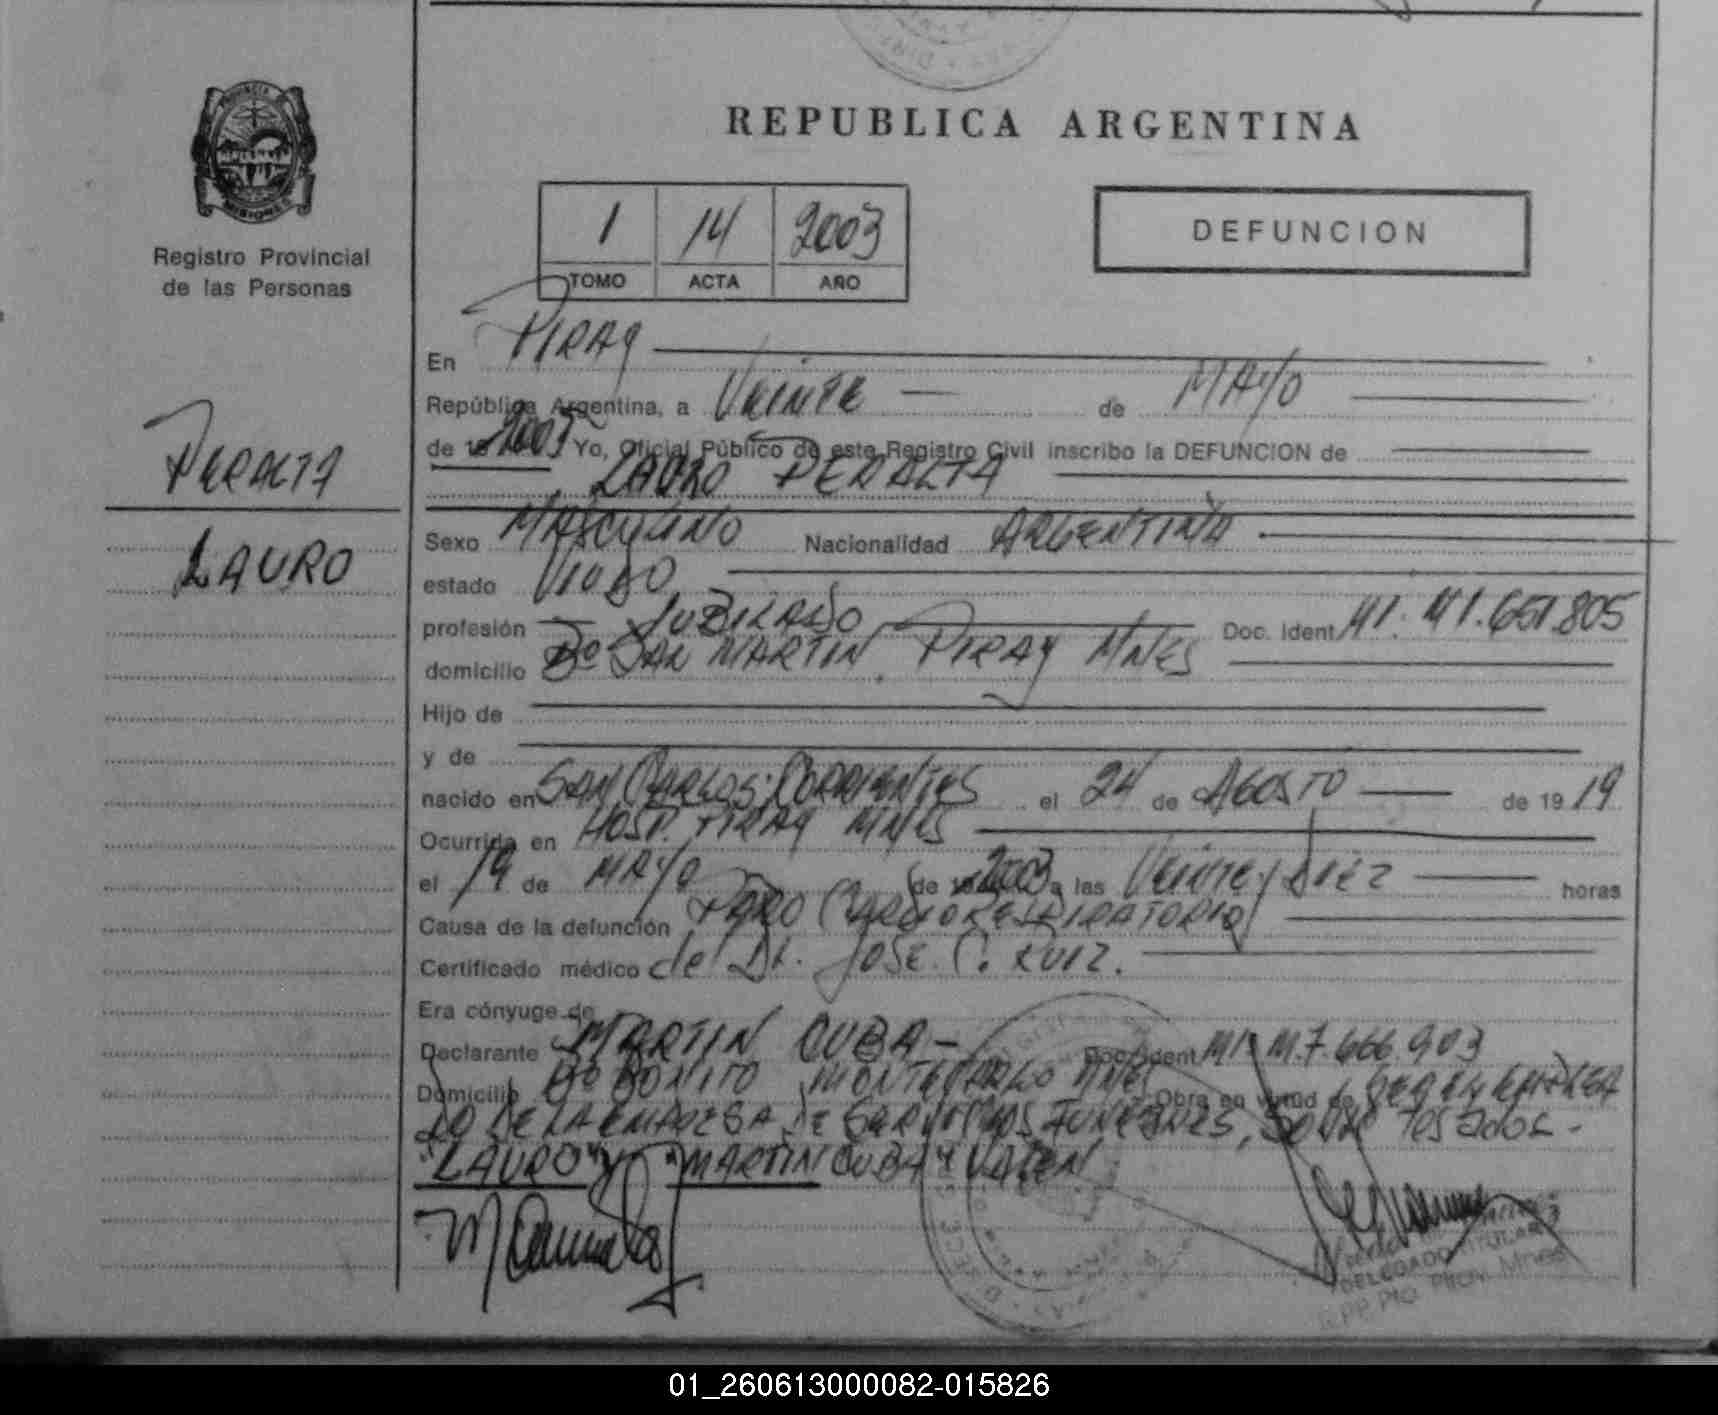 PROVINCIA DE
MISIONES
Registro Provincial
de las Personas
PERALTA
LAURO
REPUBLICA ARGENTINA
1 14 2003
TOMO ACTA AÑO
DEFUNCION
En PIRAY
República Argentina, a VEINTE de MAYO
de 19 2003 Yo, Oficial Público de este Registro Civil inscribo la DEFUNCION de
LAURO PERALTA
Sexo MASCULINO Nacionalidad ARGENTINA
estado VIUDO
profesión JUBILADO Doc. Ident. M.I. M1.651.805
domicilio Bº SAN MARTIN. PIRAY MNES
Hijo de
y de
nacido en SAN CARLOS. CORRIENTES el 24 de AGOSTO de 19 19
Ocurrida en HOSP. PIRAY MNES
el 19 de MAYO de 19 2003 a las VEINTE y DIEZ horas
Causa de la defunción PARO CARDIORESPIRATORIO
Certificado médico del Dr. JOSE. C. RUIZ.
Era cónyuge de
Declarante MARTIN CUBA -
Doc. Ident. M.I. M.7.666.903
Domicilio Bº BONITO MONTECARLO MNES Obra en virtud de SER EL EMPLEA
DO DE LA EMPRESA DE SERVICIOS FUNEBRES, SOBRE
"LAURO" y "MARTIN CUBA" VALEN
DELEGADO TITULAR
Piray Mnes
01_260613000082-015826